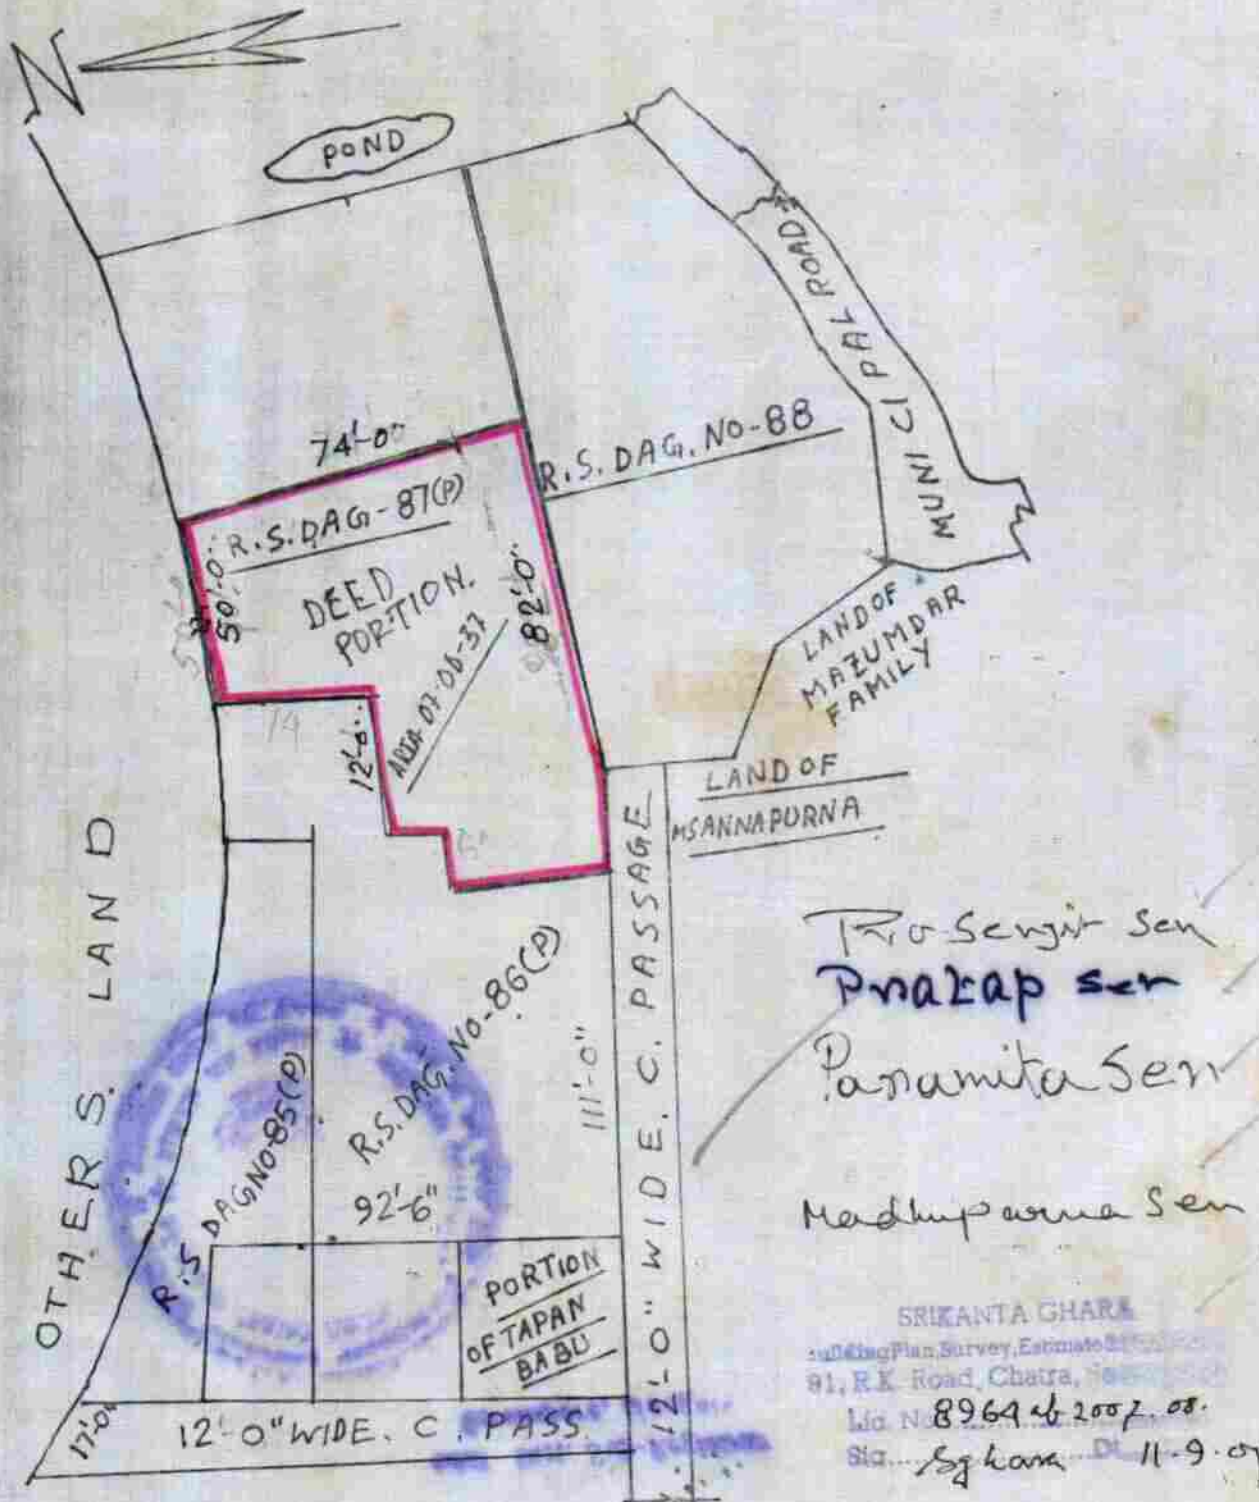 N
POND
MUNICIPAL ROAD
74'-0"
R.S. DAG. NO-88
R.S. DAG-87(P)
50'-0"
DEED
PORTION.
82'-0"
12'-0"
LAND OF
MAZUMDAR
FAMILY
LAND OF
MSANNAPURNA
OTHERS. LAND
R.S DAG NO-85(P)
R.S. DAG. NO-86(P)
111'-0"
92'-6"
PORTION
OF TAPAN
BABU
12'-0" WIDE. C. PASSAGE
17'-0"
12'-0" WIDE. C. PASS.
Sen
Sen
Paramita Sen
Madhuparna Sen
SRIKANTA GHARA
Building Plan, Survey, Estimate
91, R.K. Road, Chatra,
Lic. No. 8964 of 2007.08.
Sig..... Dt..... 11.9.07